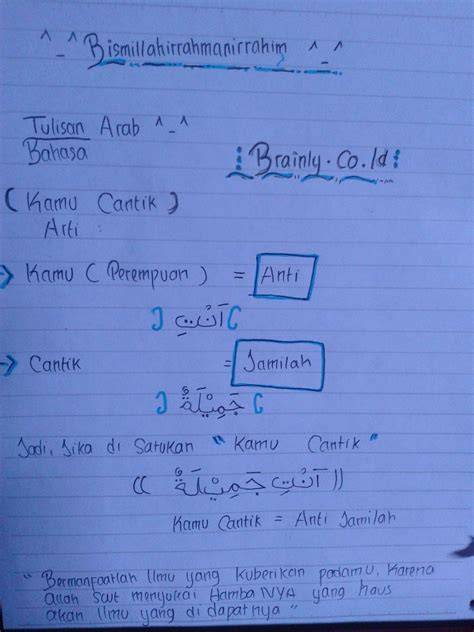 ^_^ Bismillahirrahmanirrahim ^_^
Tulisan Arab ^_^
Bahasa
Brainly.Co.Id
(Kamu Cantik)
Arti :
→ Kamu (Perempuan) = Anti
أَنْتِ
→ Cantik = Jamilah
جَمِيْلَةٌ
Jadi, Jika di Satukan "Kamu Cantik"
(( أَنْتِ جَمِيْلَةٌ ))
Kamu Cantik = Anti Jamilah
"Bermanfaatlah Ilmu yang kuberikan padamu, karena
allah SWT menyukai Hamba NYA yang haus
akan Ilmu yang di dapatnya"